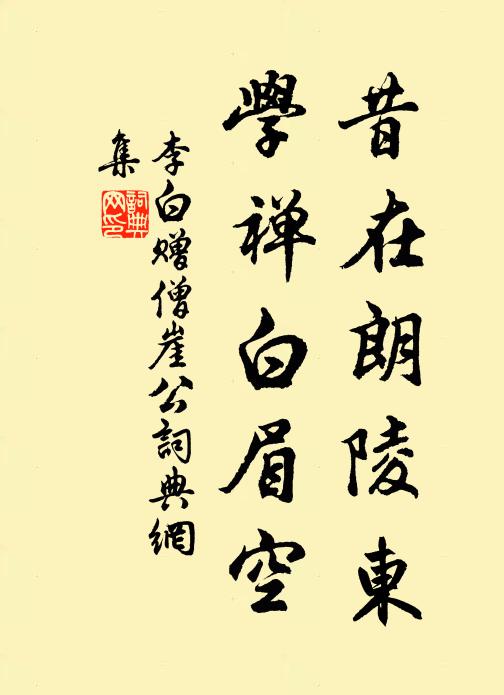 昔在朗陵東
學禅白眉空
李白赠僧崖公詞典網
集
詞典
网印